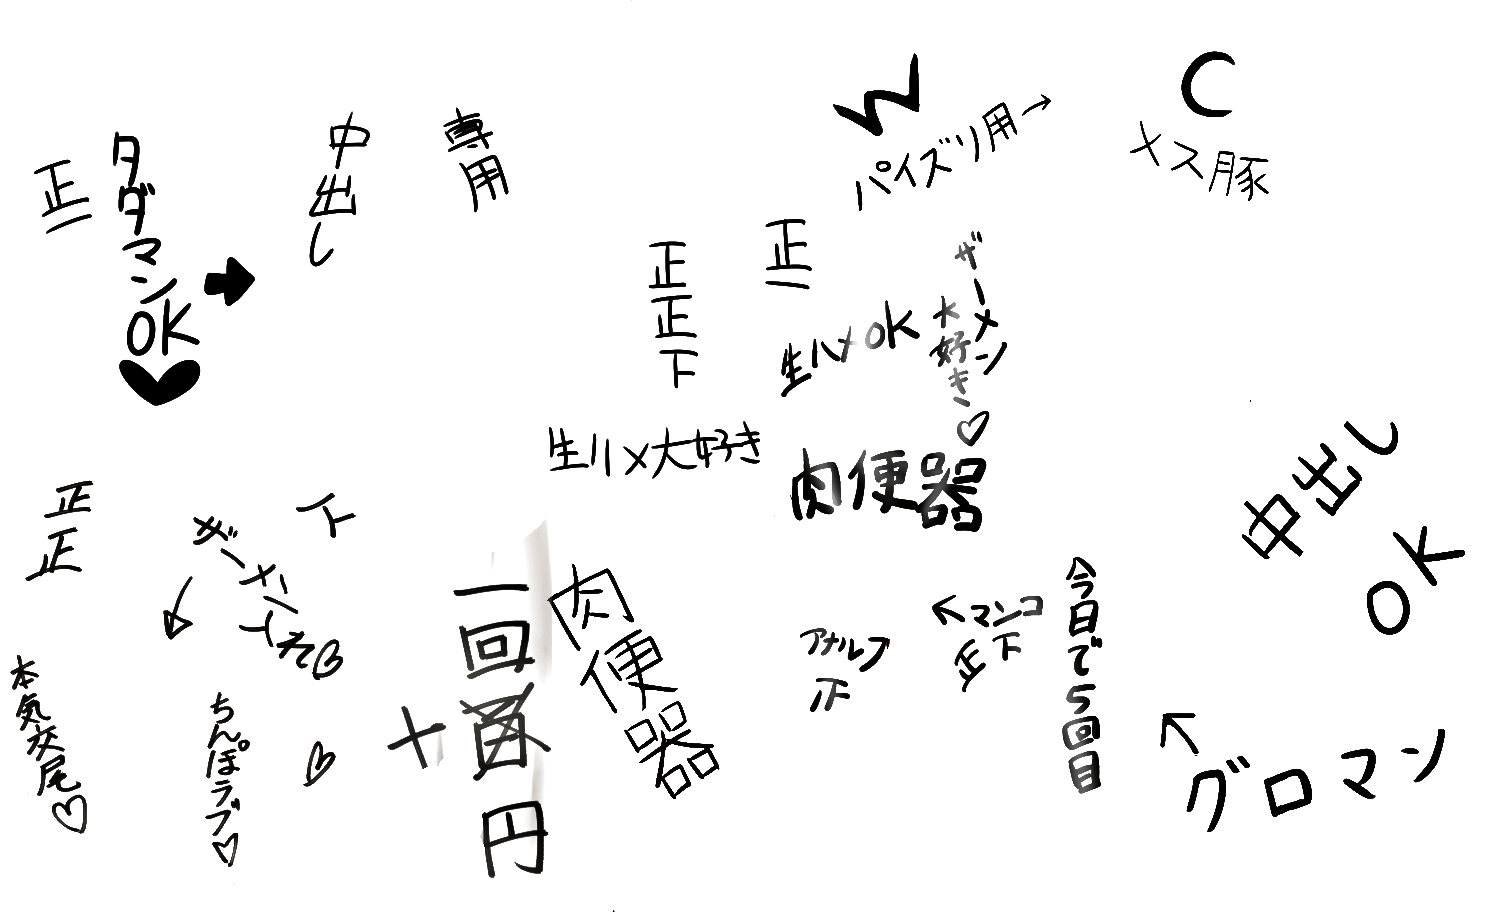 正二
タダマンOK
中出し
専用
W
パイズリ用→
C
メス豚
正正下
正二
ザーメン
大好き♡
生ハメOK
生ハメ大好き
肉便器
中出し
OK
正正
ザーメン
下
本気交尾♡
ちんぽラブ♡
♡
一回
円
十
肉便器
アナル
下
←マンコ
正下
今日で5回目
グロマン